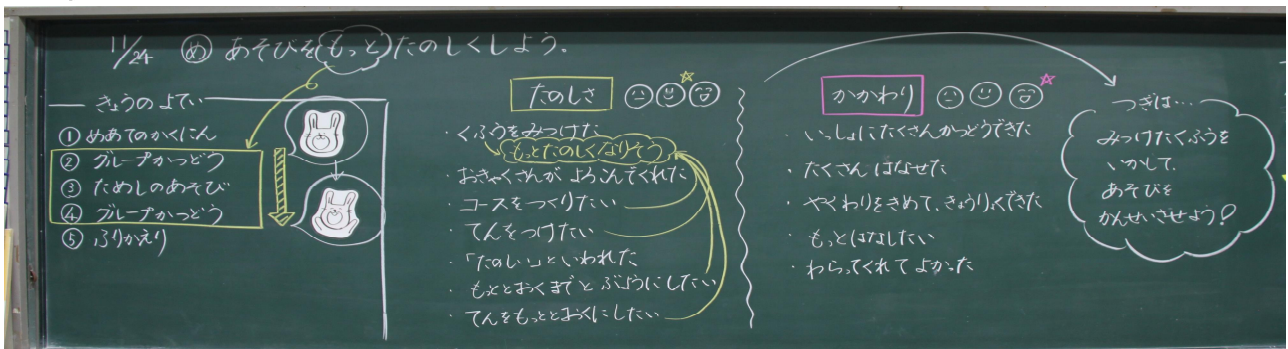 11/24 め あそびをもっとたのしくしよう。
きょうのよてい
① めあてのかくにん
② グループかつどう
③ ためしのあそび
④ グループかつどう
⑤ ふりかえり
たのしさ
・くふうをみつけた
もっとたのしくなりそう
・おきゃくさんがよろこんでくれた
・コースをつくりたい
・てんをつけたい
・「たのしい」といわれた
・もっととおくまでとぶようにしたい
・てんをもっととおくにしたい
かかわり
・いっしょにたくさんかつどうできた
・たくさんはなせた
・やくわりをきめて、きょうりょくできた
・もっとはなしたい
・わらってくれてよかった
つぎは…
みつけたくふうを
いかして、
あそびを
かんせいさせよう!